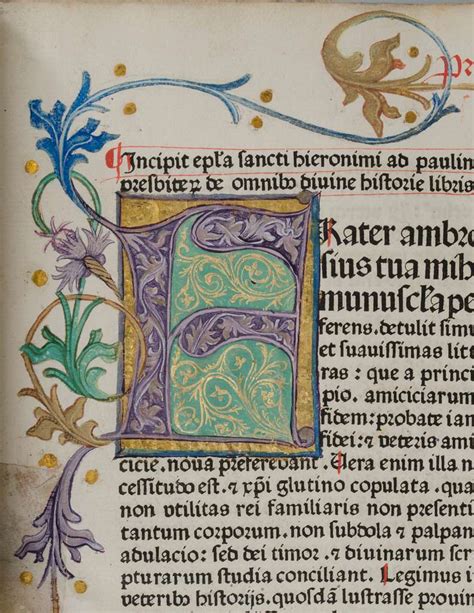 Pr
Incipit ep̄la sancti hieronimi ad paulin
presbiteꝝ de omnibꝰ diuine historie libris
F
Rater ambro
sius tua mih
munuscl̄a pe
ferens. detulit simu
et suauissimas litt
ras : que a princi
pio. amiciciarum
fidem: probate ian
fidei: ⁊ veteris amici
cicie. noua preferevant. Uera enim illa n
cessitudo est. ⁊ xp̄i glutino copulata. qua
non vtilitas rei familiaris non presenti
tantum corporum. non subdola ⁊ palpan
adulacio: sed dei timor. ⁊ diuinarum scr
pturarum studia conciliant. Legimus i
veteribꝰ historijs. quosdā lustrasse prouin